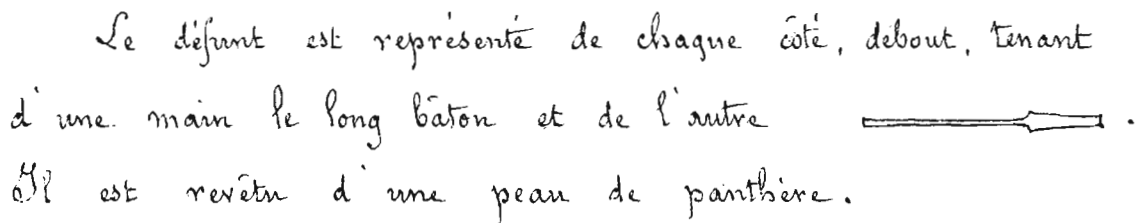 Le défunt est représenté de chaque côté, debout, tenant
d'une main le long bâton et de l'autre .
Il est revêtu d'une peau de panthère.